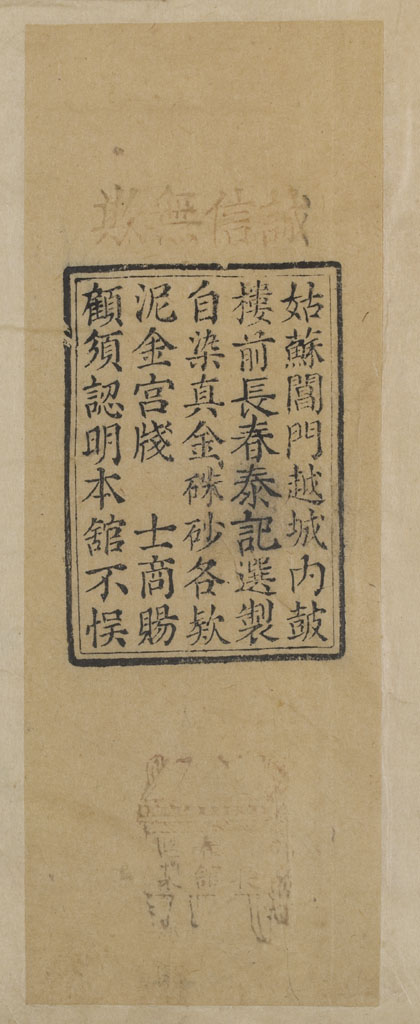 誠信無欺
姑蘇閶門越城內皷
樓前長春泰記選製
自染真金硃砂各欵
泥金宫牋 士商賜
顧須認明本舘不悮